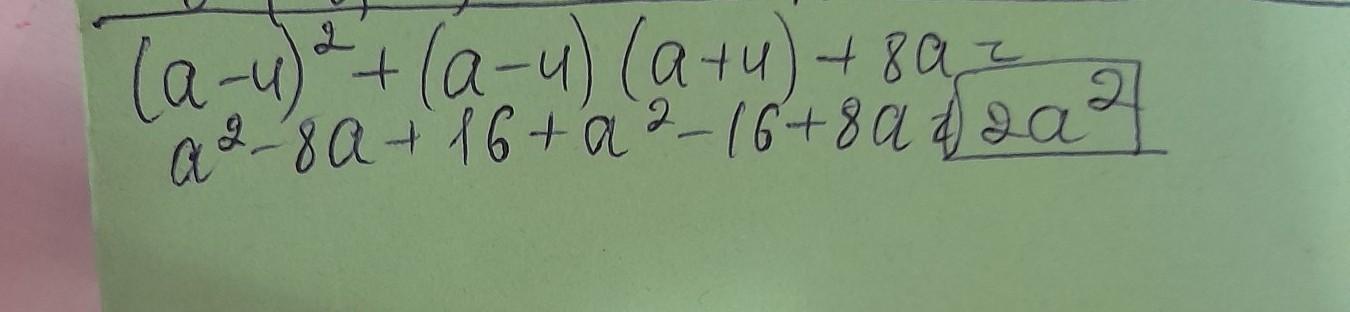 (a-4)²+(a-4)(a+4)+8a=
a²-8a+16+a²-16+8a=2a²